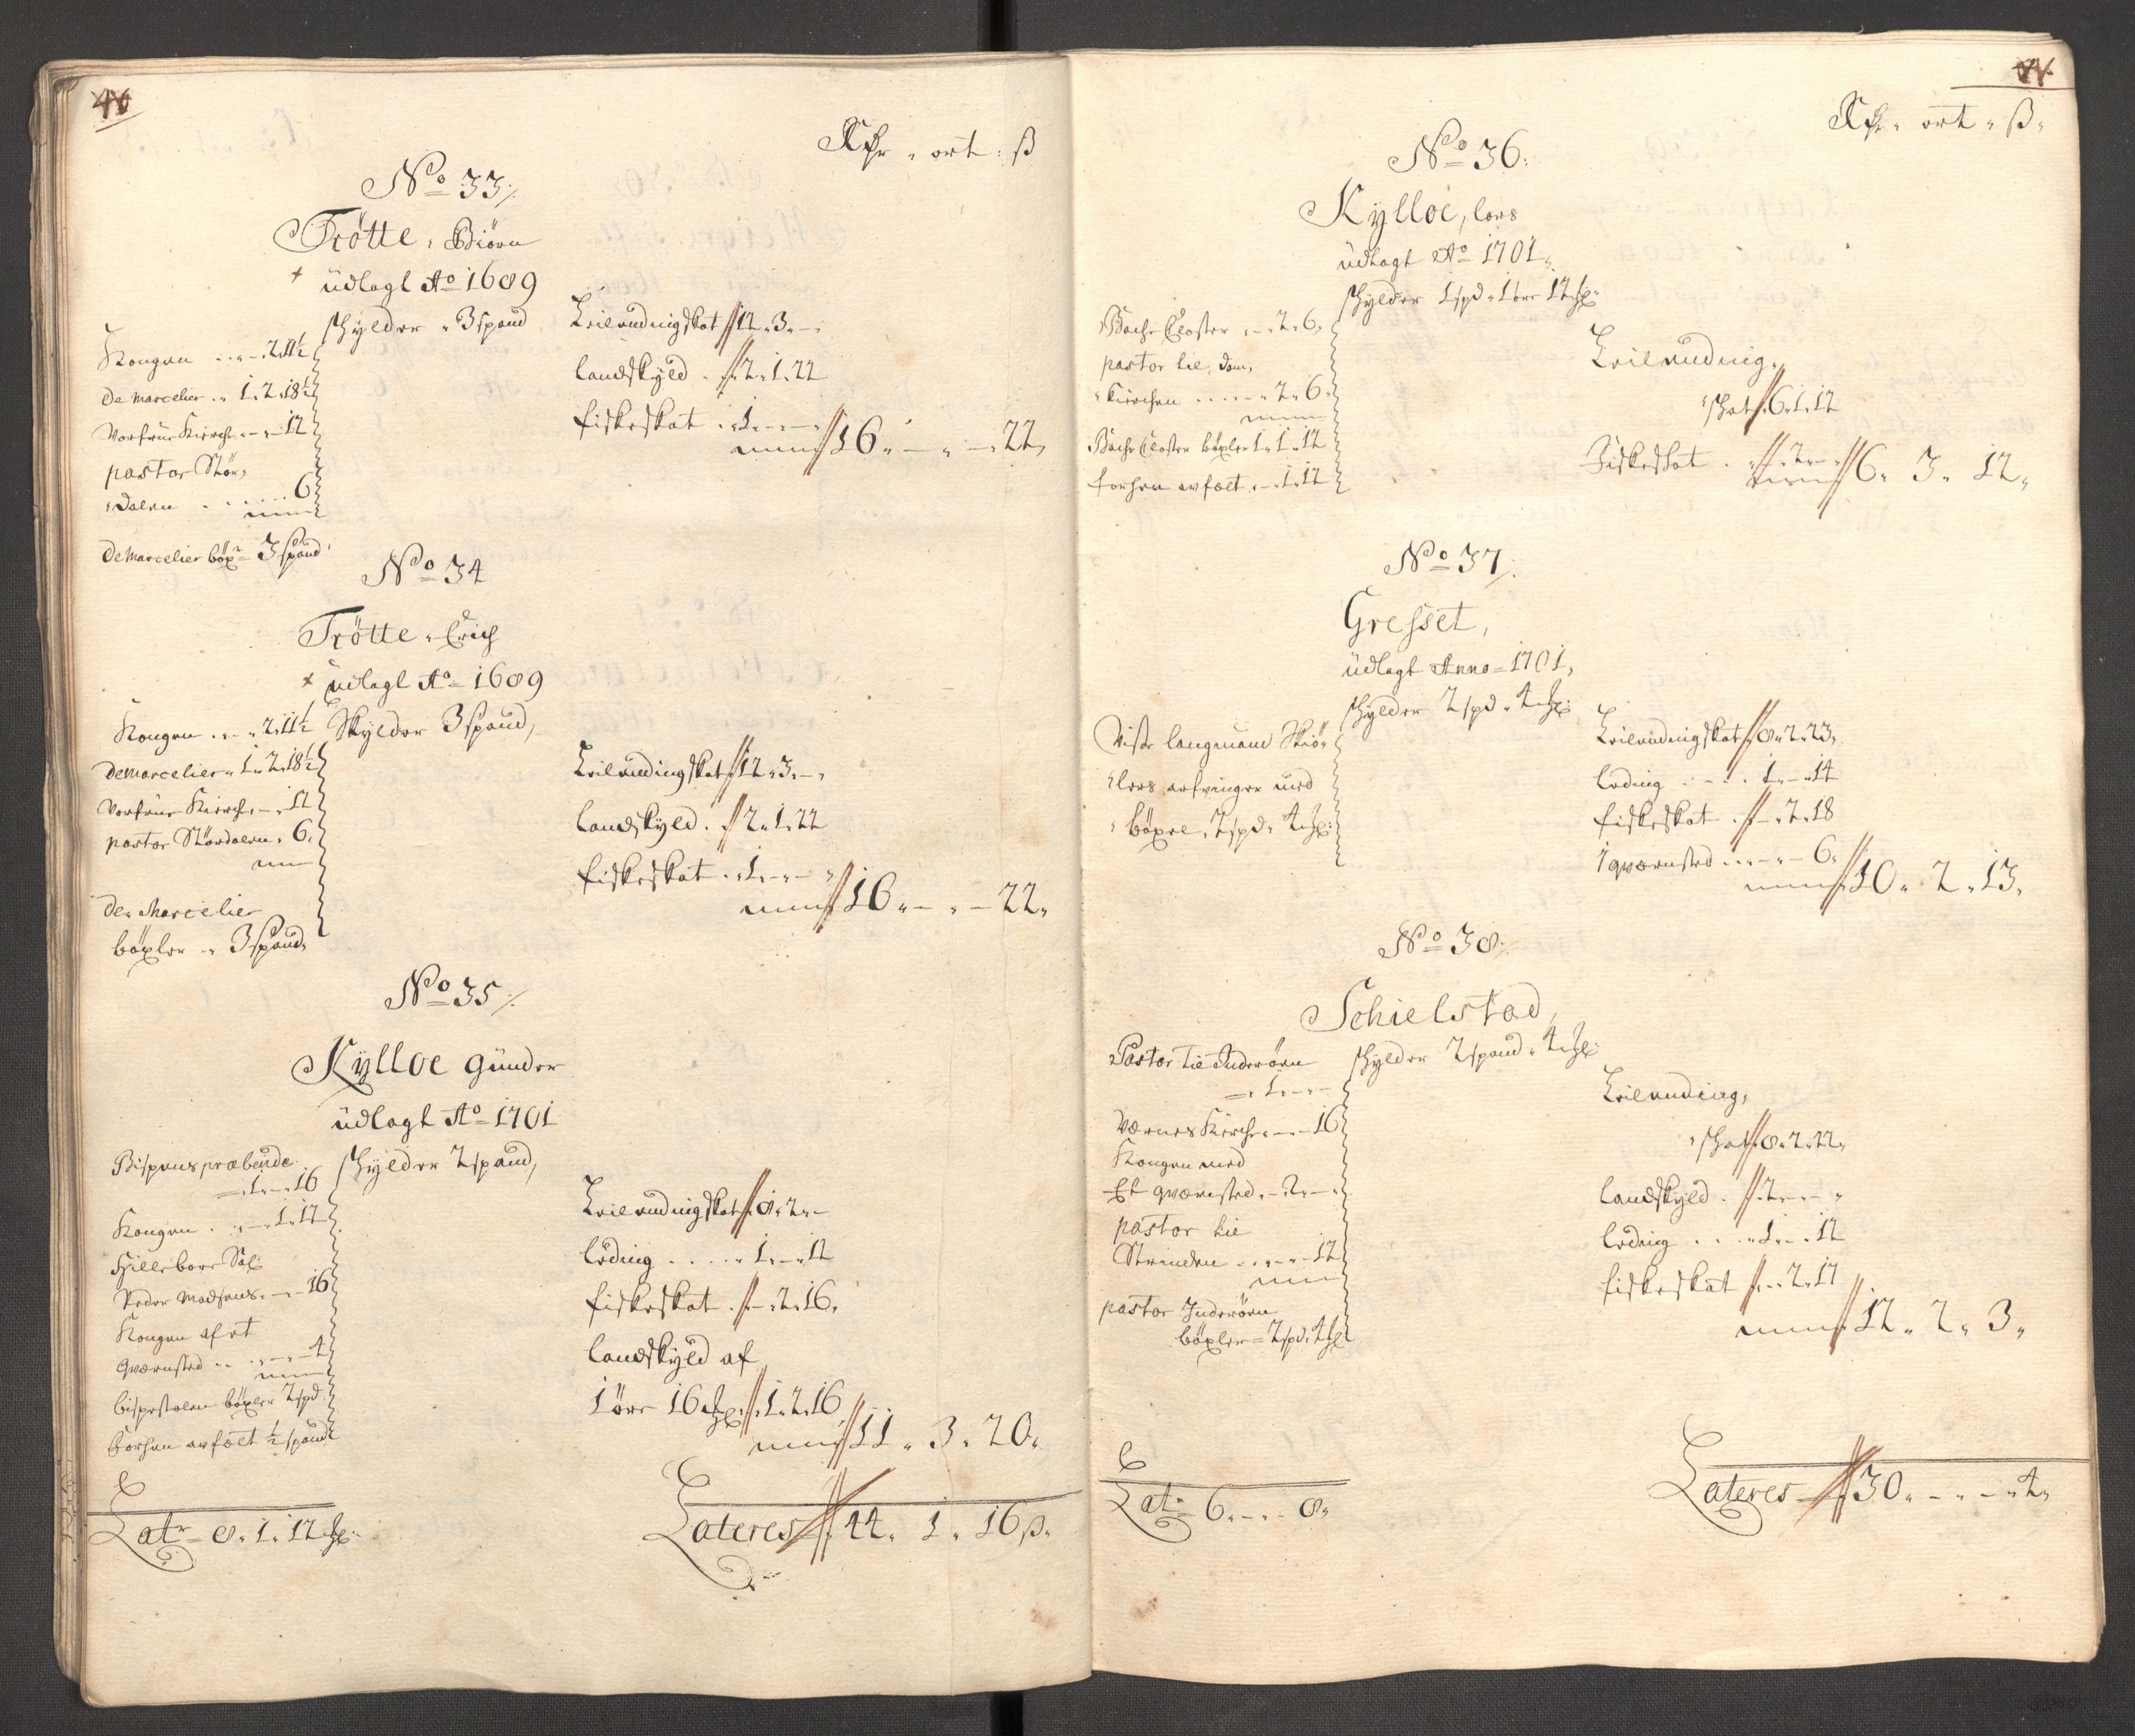 Rdr. ort. ß
No 33.
Trötte, Biörn
+ üdlagt Ao 1689
Schylder 3 spand
Kongen . . - . 2. 11½
De Marcelier . 1. 2. 18½
Vorfrue Kirche - . - 12
pastor Stör,
dalen . . . . . 6
De Marcelier böx. 3 spand
Leilendingskat 12. 3. -
landskyld . 2. 1. 22
fiskeskat . 1. - . -
16. - . - 22.
No 34
Trötte, Erich
+ üdlagt Ao 1689
Skylder 3 spand,
Kongen . . - . 2. 11½
De Marcelier . 1. 2. 18½
Vorfrue Kirche. - . 12
pastor Stördalen. 6.
De Marcelier
böxler . 3 spand.
Leilendingskat 12. 3. -
landskyld . 2. 1. 22
fiskeskat . 1. - . -
16. - . - 22.
No 35.
Kylloe Günder
üdlagt Ao 1701
Schylder 2 spand,
Bispens præbende
- . 1. - . 16
Kongen . . - . 1. 12
Hillebore Sal.
Peder Madsens. - . - 16
Kongen af et
qværnsted . . . - . - 4
bispestolen böxler 2 spd.
½ spand
Leilendingskat 8. 2. -
leding . . . . 1. - . 12
fiskeskat . - . 2. 16.
landskyld af
1 öre 16 . 1. 2. 16
11. 3. 20.
Latr. 8. 1. 12
Lateres 44. 1. 16 ß.
Rdr. ort. ß.
No 36.
Kylloe, lars
üdlagt Ao 1701.
Schylder 1 spd. 1 öre 12
Bache Closter . - . 2. 6.
pastor til, dom,
Kirchen . . . . . 2. 6.
Bache Closter böxler 1. 1. 12
. - . 1. 12
Leilending,
schat 6. 1. 12
Fiskeskat . - . 2. -
6. 3. 12.
No 37.
Gresset,
üdlagt Anno 1701,
Schylder 2 spd. 4
langmand
arfvinger med
böxel, 2 spd. 4
Leilendingskat 8. 2. 23.
leding . - . . 1. - . 14
fiskeskat . - . 2. 18
1 qværnsted . . . - . - 6.
10. 2. 13.
No 38.
Schielstad,
Schylder 2 spand. 4
Pastor til Inderöen
- . 1. - . -
Værnes Kirche. - . - 16
Kongen med
Et qværnsted. - . 2. - .
pastor til
Strinden . . . - . - 12
pastor Inderöen
böxler 2 spd. 4
Leilending,
schat 8. 2. 22.
landskyld . 2. - . - .
leding . . . 1. - . 12
fiskeskat . - . 2. 17
12. 2. 3.
Latr. 6. - . - 8.
Lateres 30. - . - . 4.